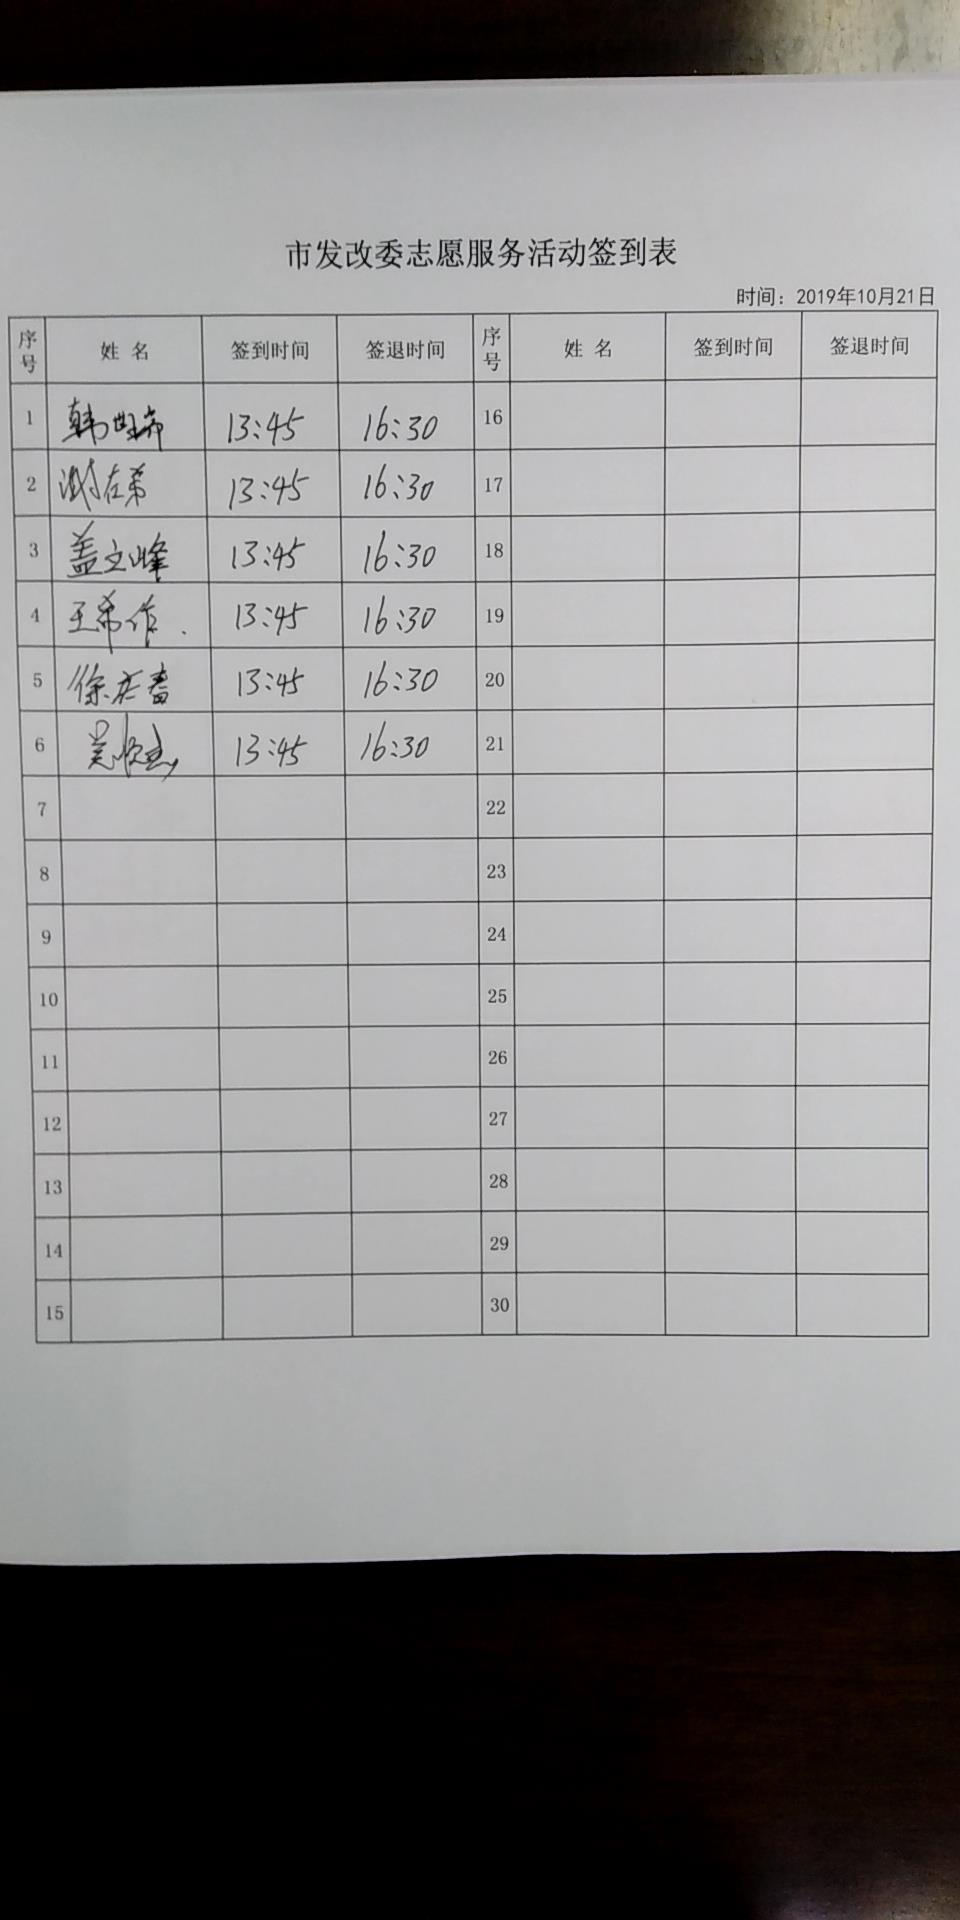 市发改委志愿服务活动签到表
时间：2019年10月21日
序号 姓名 签到时间 签退时间 序号 姓名 签到时间 签退时间
1 13:45 16:30 16
2 13:45 16:30 17
3 盖文峰 13:45 16:30 18
4 王希作 13:45 16:30 19
5 13:45 16:30 20
6 13:45 16:30 21
7 22
8 23
9 24
10 25
11 26
12 27
13 28
14 29
15 30